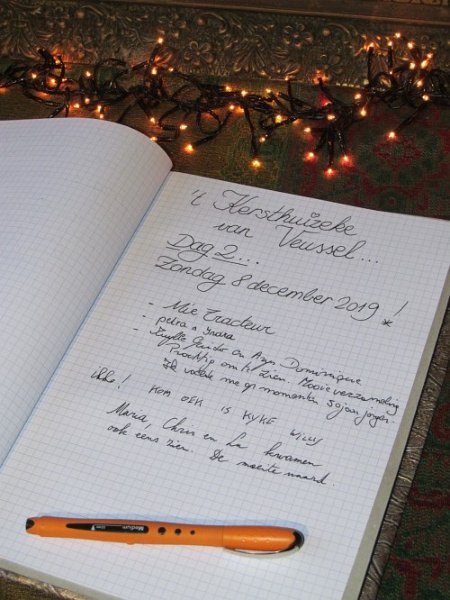 't Kersthuizeke
van Veussel...
Dag 2...
Zondag 8 december 2019!
- Mie Tracteur
- petra &
- 
Prachtig om te zien. Mooie verzameling
Ik voelde me op momenten 50 jaar jonger.
ikke!
KOM OEK IS KYKE WILLY
Maria, Chris en Lu kwamen
ook eens zien. De moeite waard.
Medium